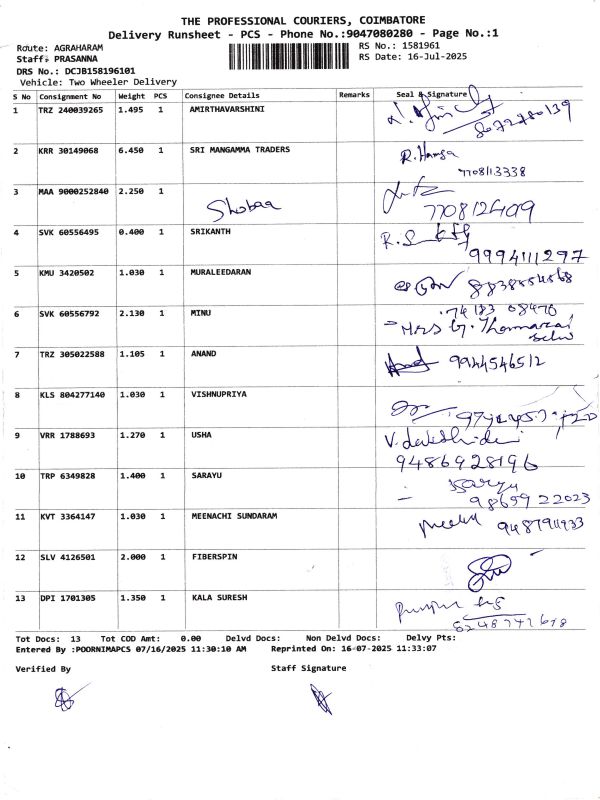 THE PROFESSIONAL COURIERS, COIMBATORE
Delivery Runsheet - PCS - Phone No.:9047080280 - Page No.:1
Route: AGRAHARAM RS No.: 1581961
Staff: PRASANNA RS Date: 16-Jul-2025
DRS No.: DCJB158196101
Vehicle: Two Wheeler Delivery
S No Consignment No Weight PCS Consignee Details Remarks Seal & Signature
1 TRZ 240039265 1.495 1 AMIRTHAVARSHINI
8072780139
2 KRR 30149068 6.450 1 SRI MANGAMMA TRADERS R.Hamsa
7708113338
3 MAA 9000252840 2.250 1
Shobaa 7708124109
4 SVK 60556495 0.400 1 SRIKANTH
9994111297
5 KMU 3420502 1.030 1 MURALEEDARAN
8838854568
6 SVK 60556792 2.130 1 MINU 74183 08476
Mrs G. Thamarai
selvi
7 TRZ 305022588 1.105 1 ANAND 9944546512
8 KLS 804277140 1.030 1 VISHNUPRIYA
9 VRR 1788693 1.270 1 USHA
9486928196
10 TRP 6349828 1.400 1 SARAYU Sarayu
98659 22023
11 KVT 3364147 1.030 1 MEENACHI SUNDARAM 9487911933
12 SLV 4126501 2.000 1 FIBERSPIN
13 DPI 1701305 1.350 1 KALA SURESH
Tot Docs: 13 Tot COD Amt: 0.00 Delvd Docs: Non Delvd Docs: Delvy Pts:
Entered By :POORNIMAPCS 07/16/2025 11:30:10 AM Reprinted On: 16-07-2025 11:33:07
Verified By Staff Signature